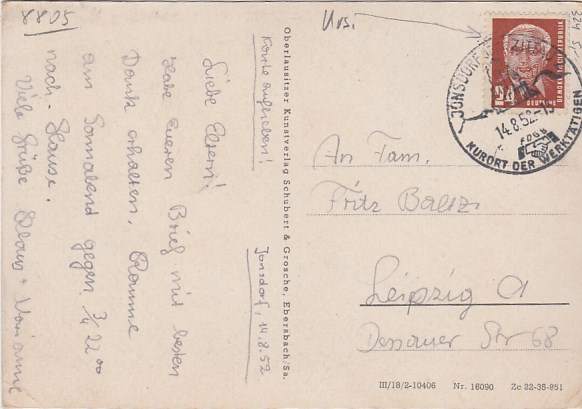 8805
Ursi
Karte aufheben!
Jonsdorf, 14.8.52
Liebe Eltern!
Habe eueren Brief mit besten
Dank erhalten. Komme
am Sonnabend gegen ¾ 22 00
nach Hause.
Viele Grüße Klaus + Marianne
Oberlausitzer Kunstverlag Schubert & Grosche, Ebersbach/Sa.
24
DEUTSCHE
DEMOKRATISCHE REPUBLIK
JONSDORF
14.8.52
KURORT DER WERKTÄTIGEN
An Fam.
Fritz Baltzi
Leipzig
Dessauer Str 68
III/18/2-10406 Nr. 16090 Zc 22-35-851